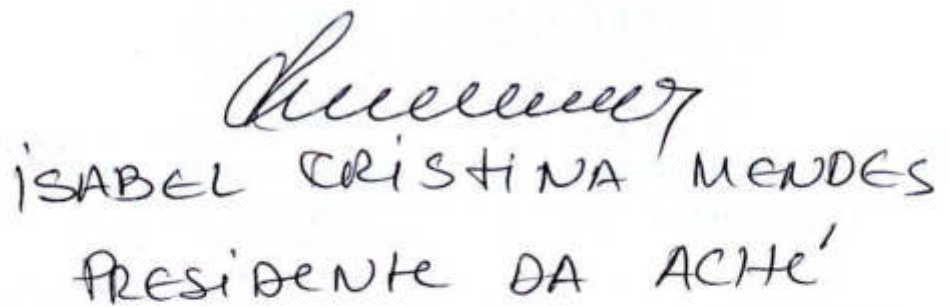 ISABEL CRISTINA MENDES
PRESIDENTE DA ACHÉ